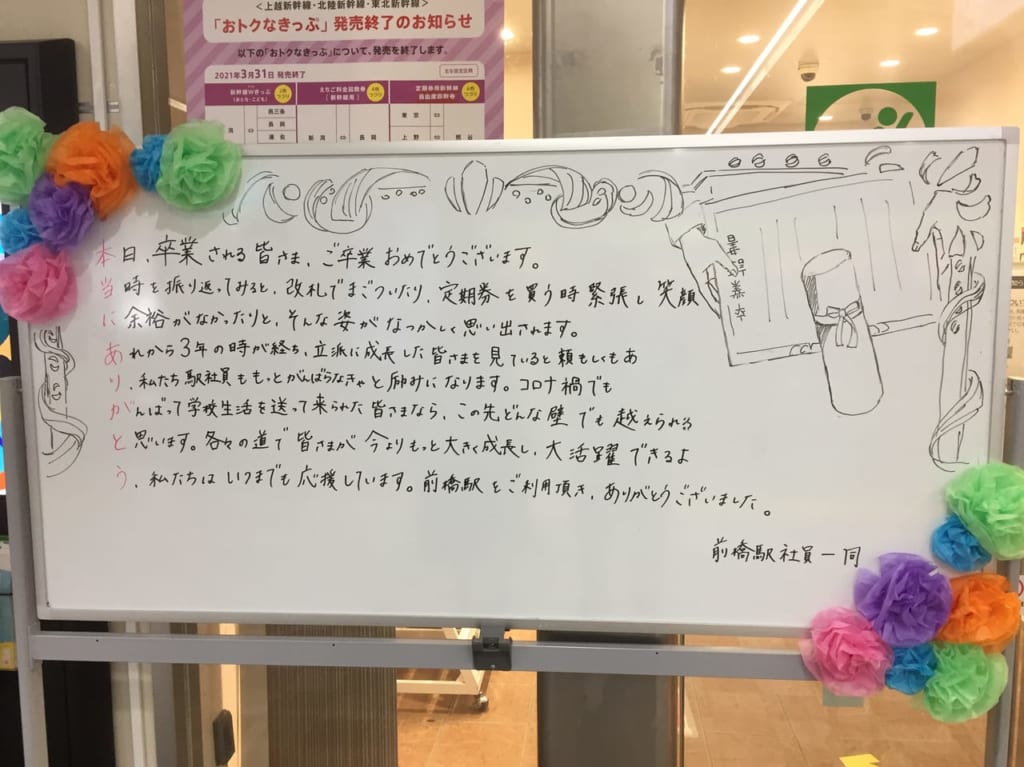 <上越新幹線・北陸新幹線・東北新幹線>
「おトクなきっぷ」発売終了のお知らせ
以下の「おトクなきっぷ」について、発売を終了します。
2021年3月31日 発売終了
新幹線Wきっぷ
えちご料金回数券
[新幹線用]
定期券用新幹線
自由席回数券
燕三条
長岡
浦佐
潟 ⇔
新潟 ⇔ 長岡
東京 ⇔
上野 ⇔ 熊谷
本日、卒業される皆さま、ご卒業おめでとうございます。
当時を振り返ってみると、改札でまごついたり、定期券を買う時緊張し笑顔
に余裕がなかったりと、そんな姿がなつかしく思い出されます。
あれから3年の時が経ち、立派に成長した皆さまを見ていると頼もしくもあ
り、私たち駅社員ももっとがんばらなきゃと励みになります。コロナ禍でも
がんばって学校生活を送って来られた皆さまなら、この先どんな壁でも越えられる
と思います。各々の道で皆さまが今よりもっと大きく成長し、大活躍できるよ
う、私たちはいつまでも応援しています。前橋駅をご利用頂き、ありがとうございました。
前橋駅社員一同